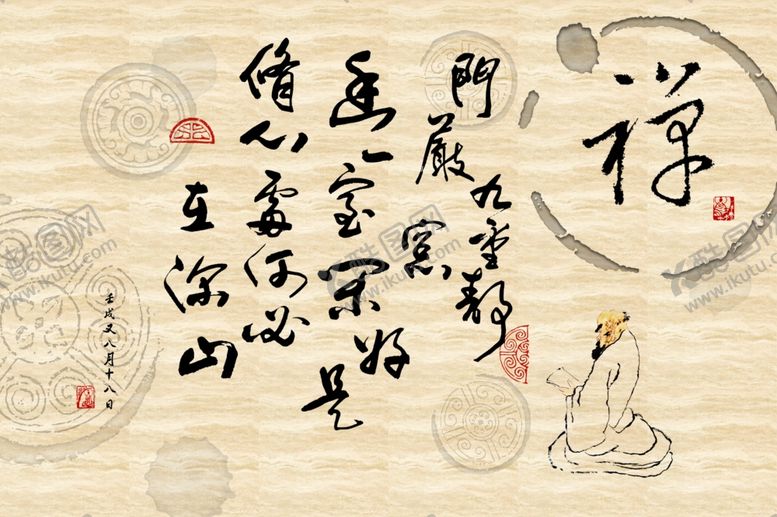 禅
門嚴九重靜
窗
幽一室閑好是
脩心處何必
在深山
壬戌又八月十八日
酷图网
www.ikutu.com